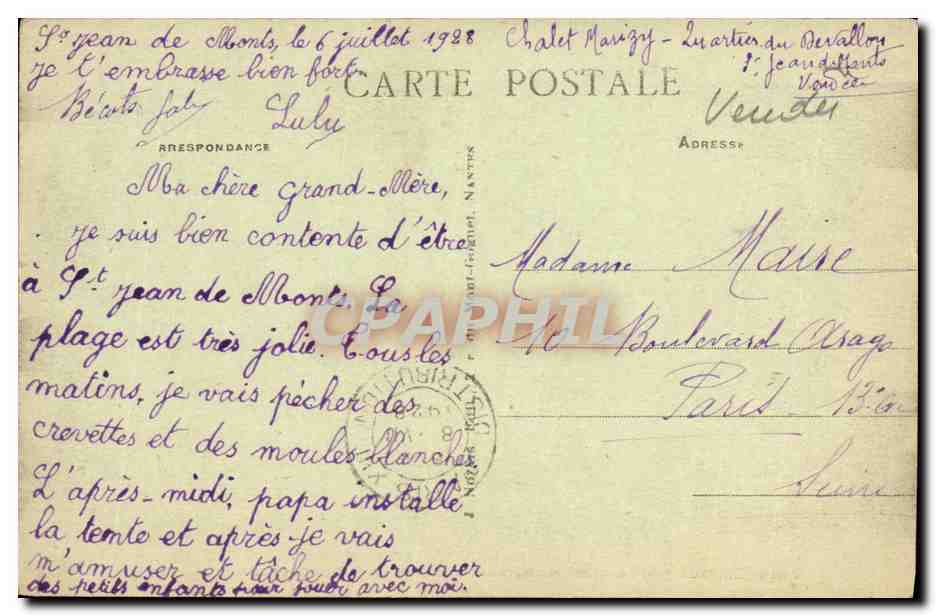 St Jean de Monts, le 6 juillet 1928
je t'embrasse bien fort
Bécots
Lulu
Chalet Marizy - Quartier du Devallon
St Jean de Monts
Vendée
CARTE POSTALE
Vendée
RRESPONDANCE
ADRESSE
Ma chère Grand-Mère,
je suis bien contente d'être
à St Jean de Monts. La
plage est très jolie. Tous les
matins, je vais pécher des
crevettes et des moules blanches
L'après-midi, papa installe
la tente et après je vais
m'amuser et tâche de trouver
des petits enfants pour jouer avec moi.
NANTES
CPAPHIL
Madame Maire
10 Boulevard Arago
Paris - 13e
Seine
DISTRIBUTION